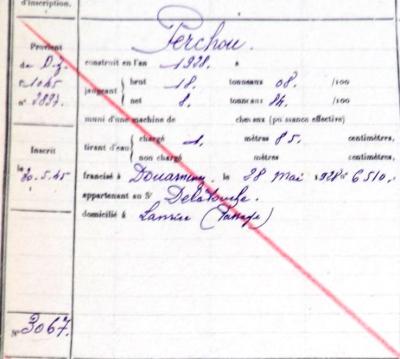 d'inscription.
Perchou.
Provient
de D.Z.
construit en l'an 1928. à
fo 1045
jaugeant brut 18. tonneaux 08. /100
no 2897.
net 8. tonneaux 84. /100
muni d'une machine de chevaux (puissance effective)
tirant d'eau chargé 1. mètres 85. centimètres,
non chargé mètres centimètres,
Inscrit
le 20.5.45
francisé à Douarnenez le 28 Mai 1928 no 6510.
appartenant au Sr Delatouche.
domicilié à Lanriec (Passage)
No 3067.